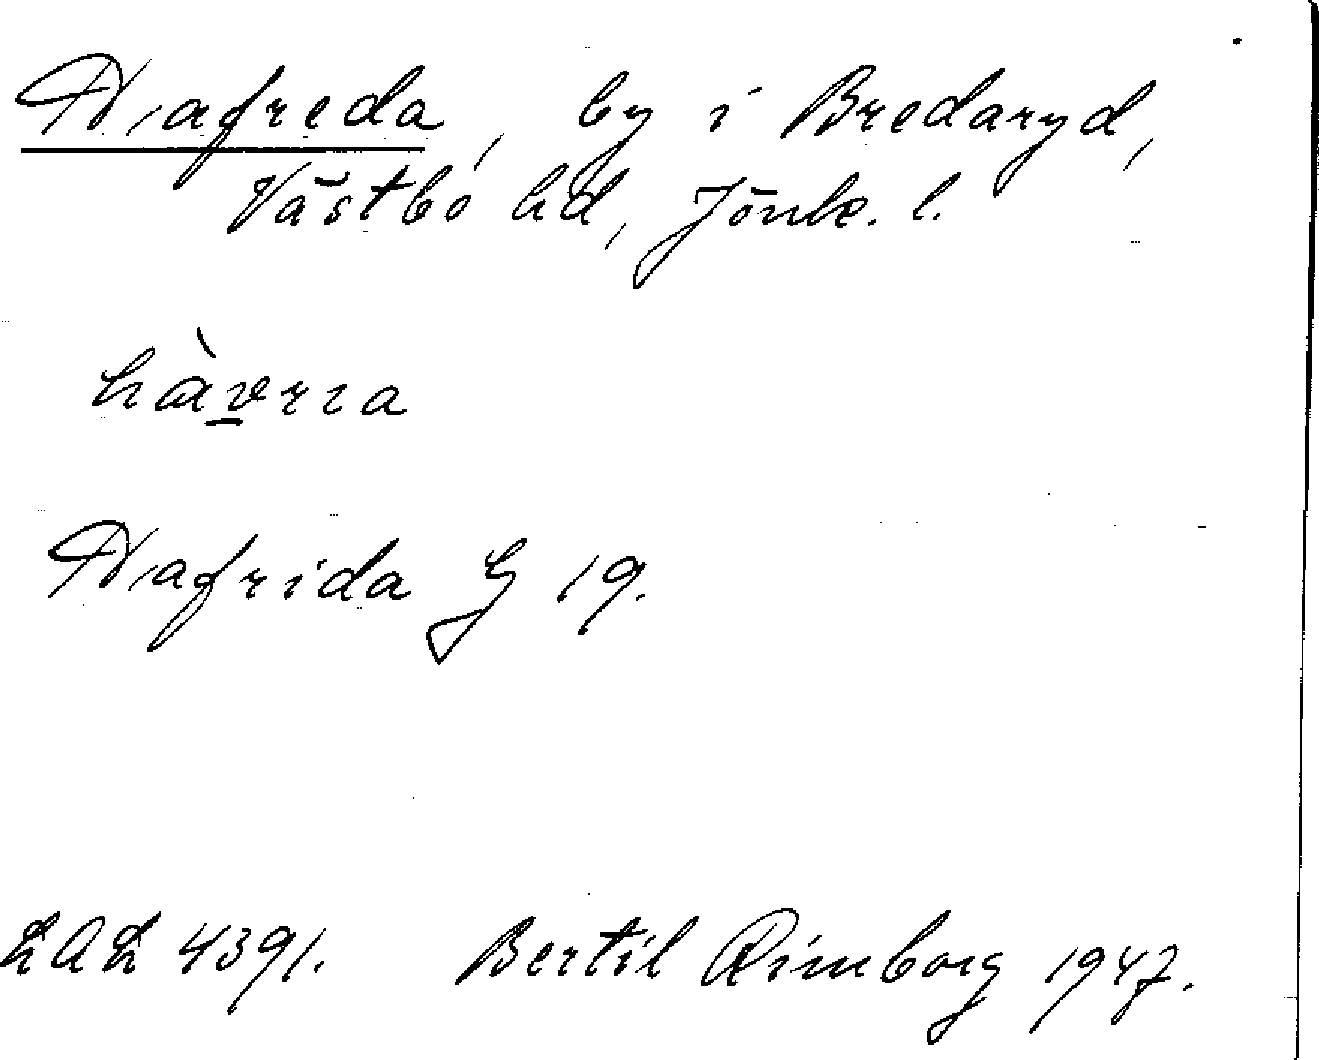 Hafreda, by i Bredaryd,
Västbo hd, Jönk. l.
hàvrra
Hafrida G 19.
LAL 4391. Bertil Rimborg 1947.